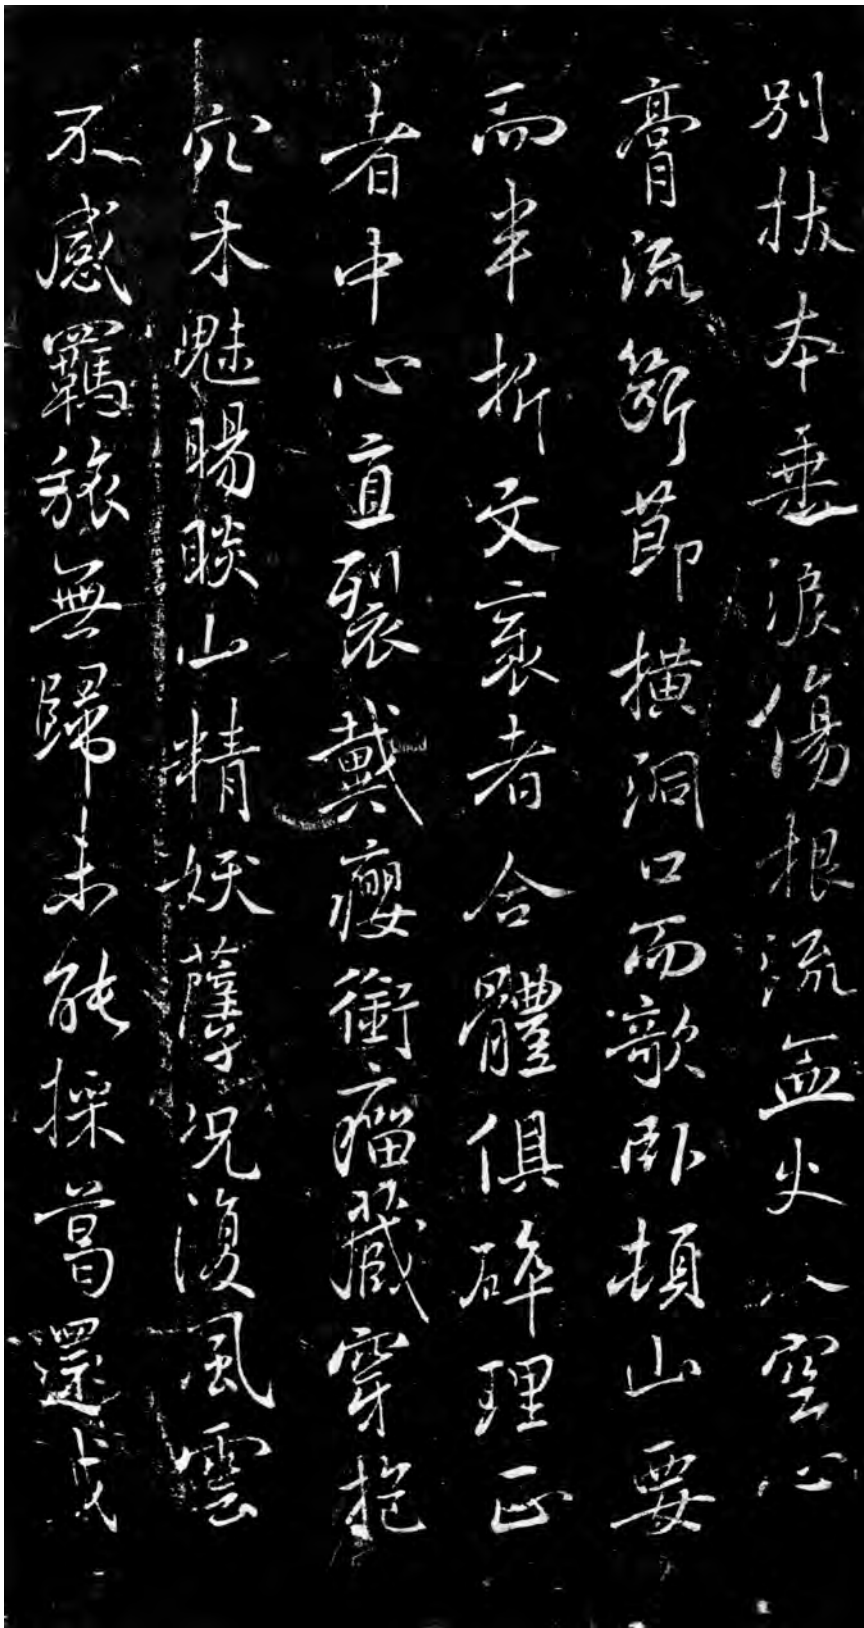 別拔本垂淚傷根流血火入空心
膏流斷節橫洞口而欹臥頓山要
而半折文衺者合體俱碎理正
者中心直裂戴癭銜瘤藏穿抱
穴木魅睗睒山精妖孽況復風雲
不感羈旅無歸未能採葛還成